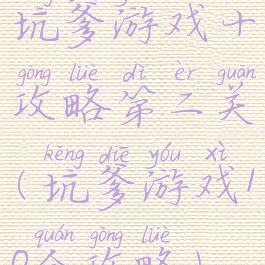 坑爹游戏十
gōng lüè dì èr guān
攻略第二关
kēng diē yóu xì
(坑爹游戏1
quán gōng lüè
0全攻略)